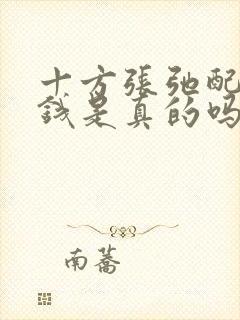 十方張弛配
錢是真的嗎
南蕎